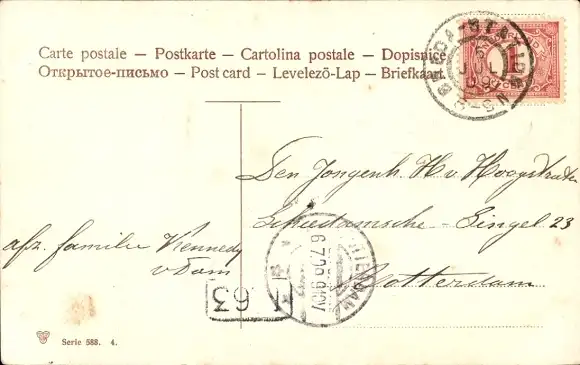 Carte postale — Postkarte — Cartolina postale — Dopisnice
Открытое-письмо — Post card — Levelezõ-Lap — Briefkaart.
Den Jongenh. H. v. Hoogstraten
Schiedamsche-Singel 23
Rotterdam
afz. familie Kennedy
v Dam
63
Serie 588. 4.